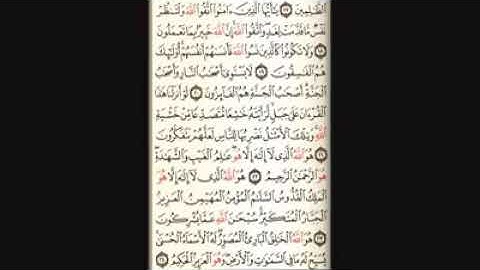 ٱلظَّٰلِمِينَ ١٧ يَٰٓأَيُّهَا ٱلَّذِينَ ءَامَنُوا۟ ٱتَّقُوا۟ ٱللَّهَ وَلْتَنظُرْ
نَفْسٌ مَّا قَدَّمَتْ لِغَدٍ وَٱتَّقُوا۟ ٱللَّهَ إِنَّ ٱللَّهَ خَبِيرٌۢ بِمَا تَعْمَلُونَ
١٨ وَلَا تَكُونُوا۟ كَٱلَّذِينَ نَسُوا۟ ٱللَّهَ فَأَنسَىٰهُمْ أَنفُسَهُمْ أُو۟لَٰٓئِكَ
هُمُ ٱلْفَٰسِقُونَ ١٩ لَا يَسْتَوِىٓ أَصْحَٰبُ ٱلنَّارِ وَأَصْحَٰبُ
ٱلْجَنَّةِ أَصْحَٰبُ ٱلْجَنَّةِ هُمُ ٱلْفَآئِزُونَ ٢٠ لَوْ أَنزَلْنَا هَٰذَا
ٱلْقُرْءَانَ عَلَىٰ جَبَلٍ لَّرَأَيْتَهُۥ خَٰشِعًا مُّتَصَدِّعًا مِّنْ خَشْيَةِ
ٱللَّهِ وَتِلْكَ ٱلْأَمْثَٰلُ نَضْرِبُهَا لِلنَّاسِ لَعَلَّهُمْ يَتَفَكَّرُونَ
٢١ هُوَ ٱللَّهُ ٱلَّذِى لَآ إِلَٰهَ إِلَّا هُوَ عَٰلِمُ ٱلْغَيْبِ وَٱلشَّهَٰدَةِ
هُوَ ٱلرَّحْمَٰنُ ٱلرَّحِيمُ ٢٢ هُوَ ٱللَّهُ ٱلَّذِى لَآ إِلَٰهَ إِلَّا هُوَ
ٱلْمَلِكُ ٱلْقُدُّوسُ ٱلسَّلَٰمُ ٱلْمُؤْمِنُ ٱلْمُهَيْمِنُ ٱلْعَزِيزُ
ٱلْجَبَّارُ ٱلْمُتَكَبِّرُ سُبْحَٰنَ ٱللَّهِ عَمَّا يُشْرِكُونَ
٢٣ هُوَ ٱللَّهُ ٱلْخَٰلِقُ ٱلْبَارِئُ ٱلْمُصَوِّرُ لَهُ ٱلْأَسْمَآءُ ٱلْحُسْنَىٰ
يُسَبِّحُ لَهُۥ مَا فِى ٱلسَّمَٰوَٰتِ وَٱلْأَرْضِ وَهُوَ ٱلْعَزِيزُ ٱلْحَكِيمُ ٢٤